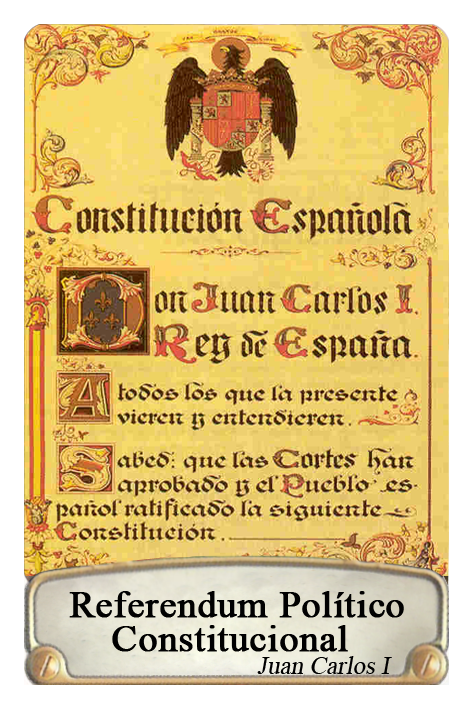 Constitución Española
Don Juan Carlos I.
Rey de España.
A todos los que la presente
vieren y entendieren.
Sabed: que las Cortes han
aprobado y el Pueblo es-
pañol ratificado la siguiente
Constitución.
Referendum Político
Constitucional
Juan Carlos I